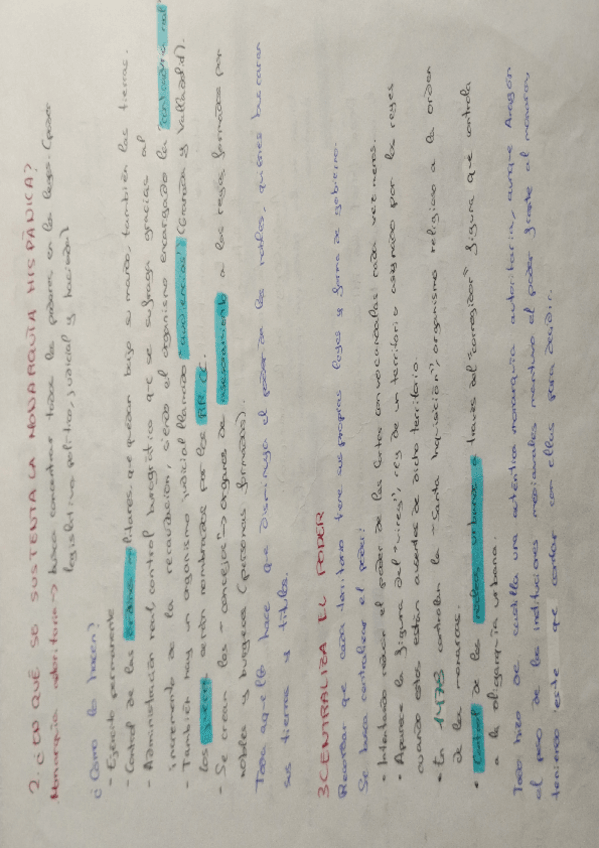 2. ¿EN QUÉ SE SUSTENTA LA MONARQUÍA HISPÁNICA?
Monarquía autoritaria -> busca concentrar todos los poderes en los reyes. (poder
legislativo, político, judicial y hacienda)
¿Cómo lo hacen?
- Ejército permanente
- Control de las órdenes militares, que quedan bajo su mando, también las tierras.
- Administración real: control burogrático que se sufraga gracias al
incremento de la recaudación, siendo el organismo encargado la "contaduría real"
- También hay un organismo judicial llamado "audiencias" (Granada y Valladolid).
Los jueces serán nombrados por los RR.CC.
- Se crean los "concejos" -> órganos de asesoramiento a los reyes formados por
nobles y burgueses (personas formadas).
Todo aquello hace que disminuya el poder de los nobles, quienes buscaran
sus tierras y títulos.
3 CENTRALIZA EL PODER
Recordar que cada territorio tiene sus propias leyes y forma de gobierno.
Se busca centralizar el poder:
• Intentando reducir el poder de las Cortes convocandolas cada vez menos.
• Aparece la figura del "virey", rey de un territorio asignado por los reyes
cuando estos están ausentes de dicho territorio.
• En 1478 controlan la "Santa Inquisición", organismo religioso a la orden
de la monarcas.
• Control de los núcleos urbanos a través del "corregidor" figura que controla
a la oligarquía urbana.
Todo hizo de castilla una auténtica monarquía autoritaria, aunque Aragón
el peso de las instituciones medievales mantuvo el poder frente al monarca,
teniendo este que contar con ellas para decidir.